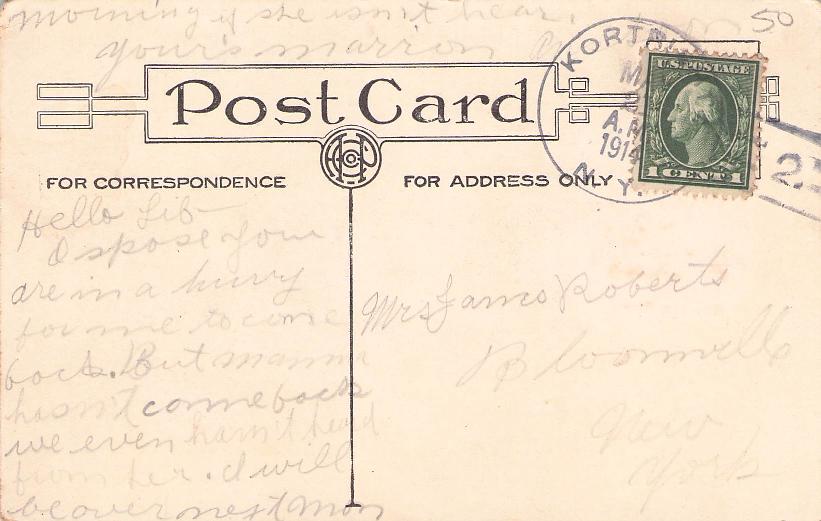 morning if she isn't hear.
your's marrion
50
Post Card
KORTRI
A.M.
1914
N.Y.
U.S. POSTAGE
1 CENT 1
2
FOR CORRESPONDENCE
FOR ADDRESS ONLY
Hello Lib
I spose you
are in a hurry
for me to come
back. But mamma
hasn't come back
we even hasn't heard
from her. I will
be over next mon
Mrs James Roberts
Bloomville
New
York